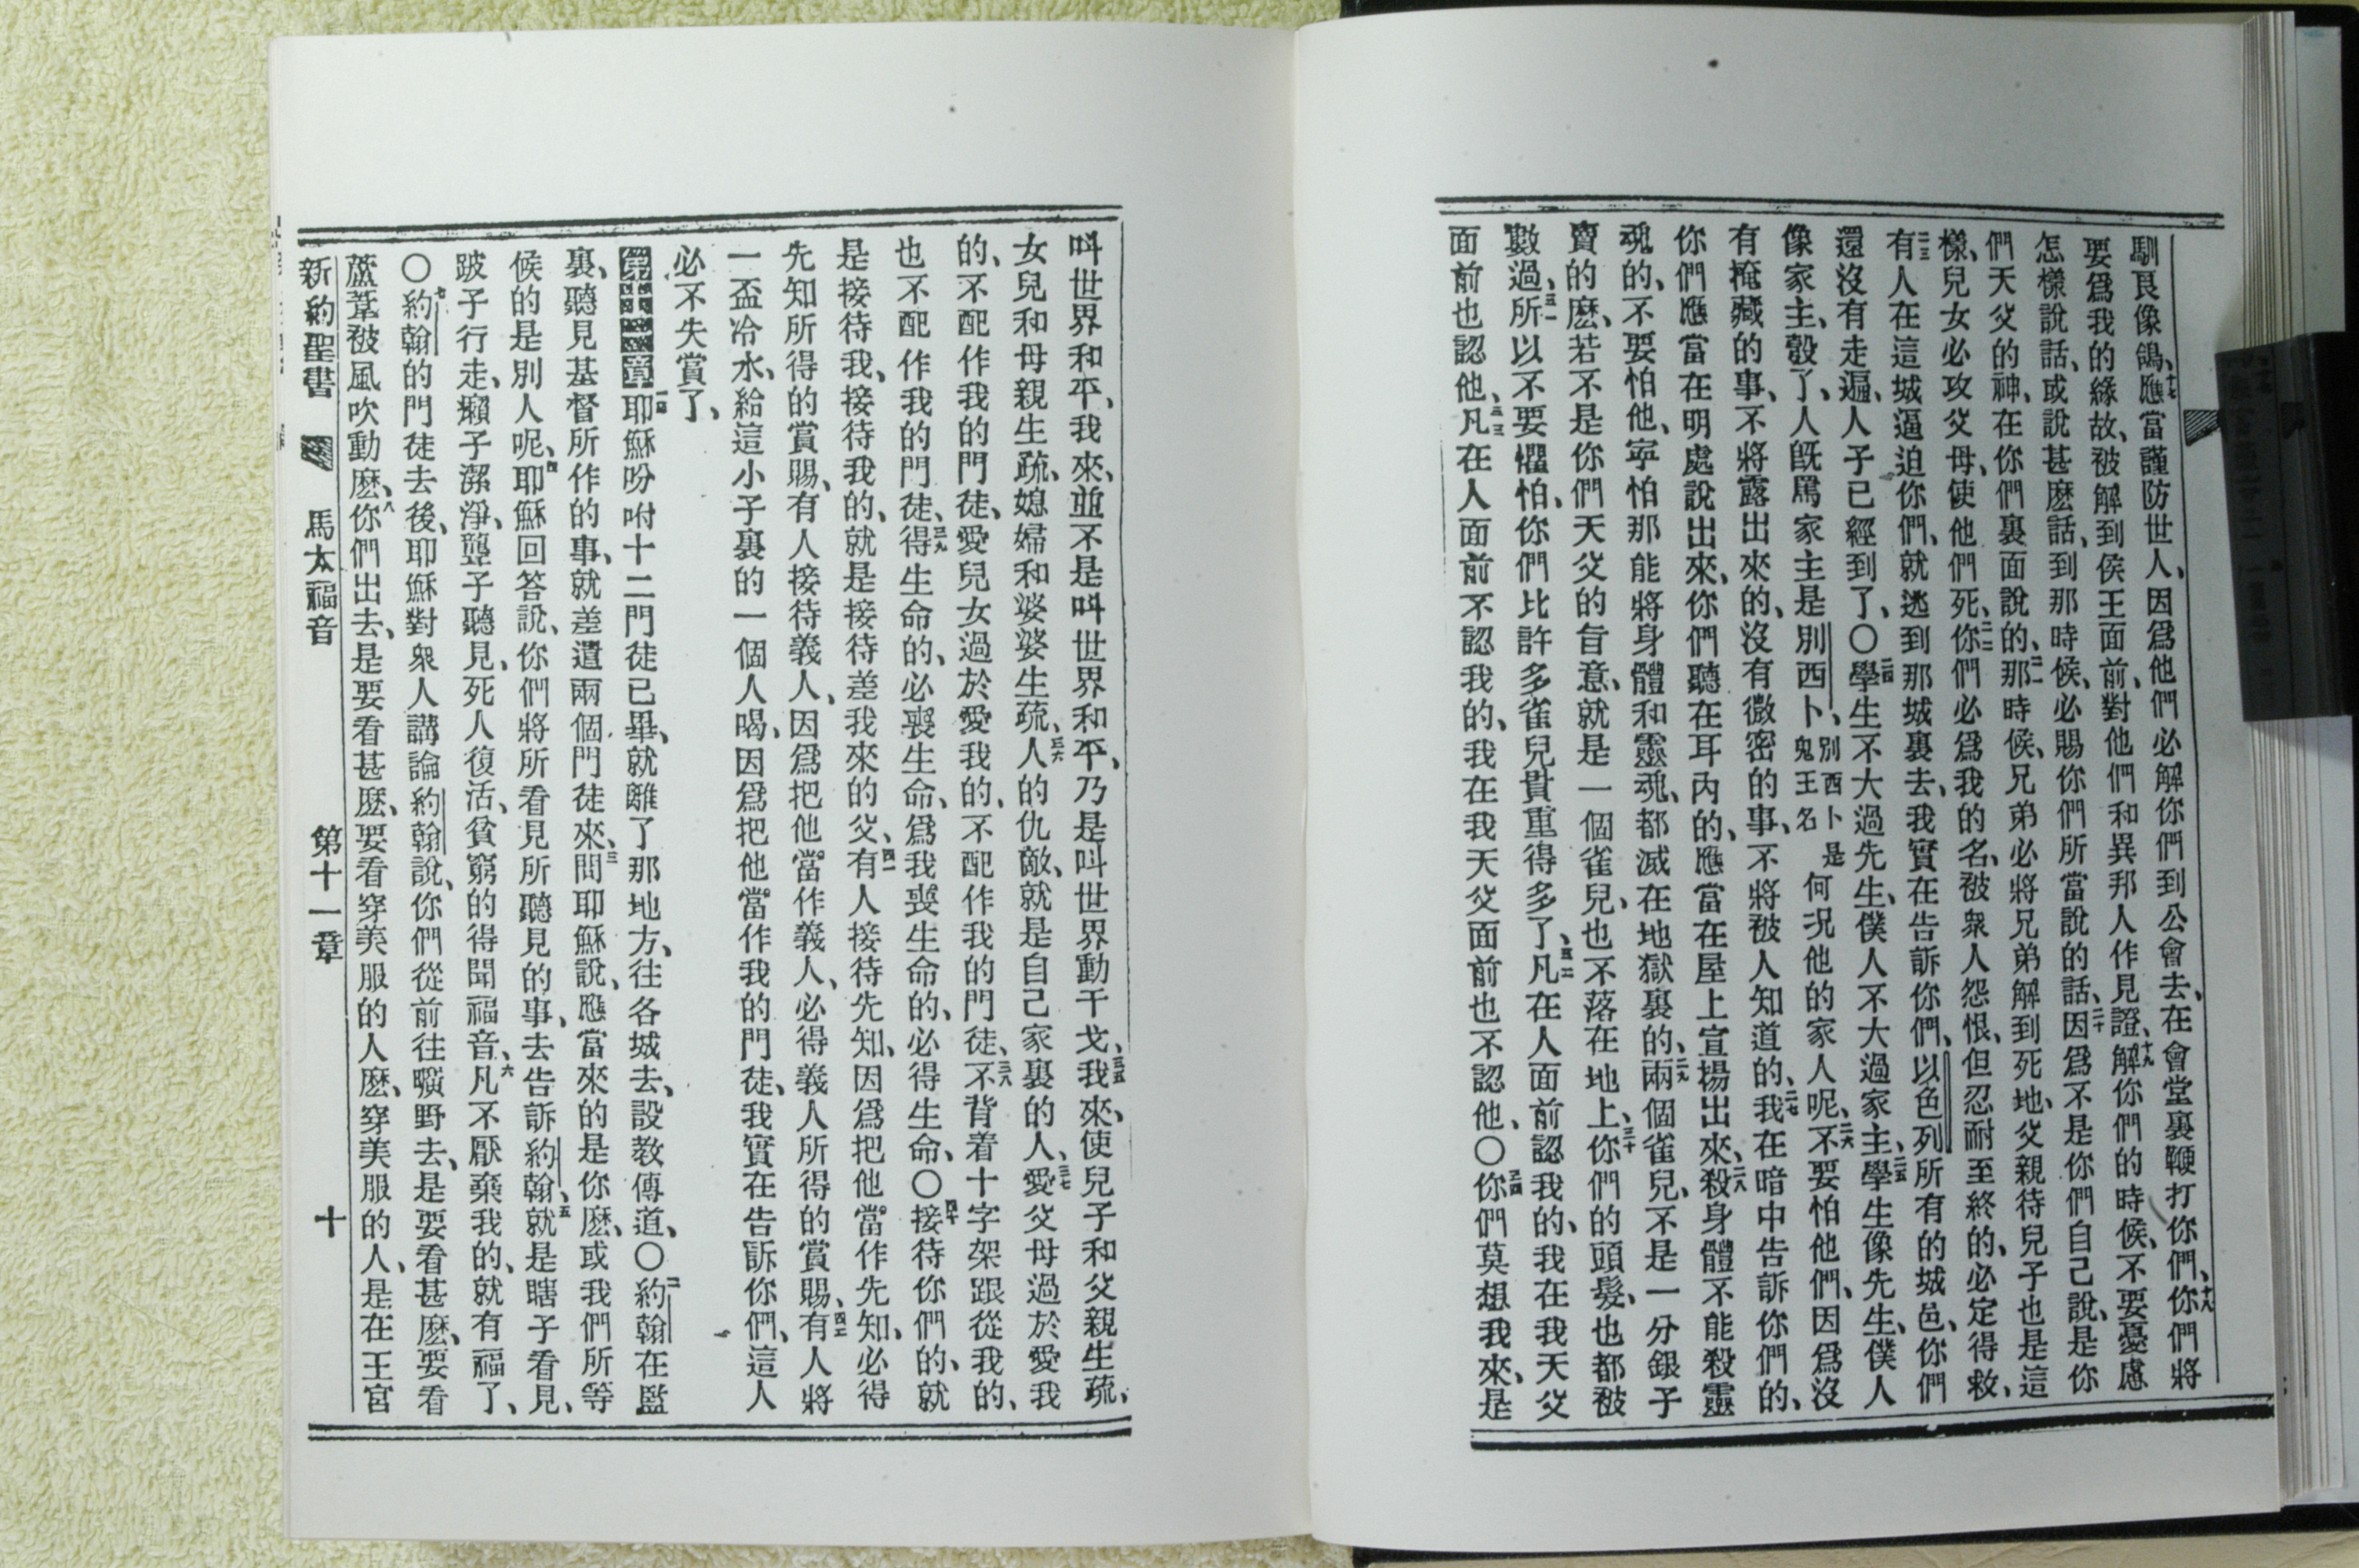 馴良像鴿、十七應當謹防世人、因爲他們必解你們到公會去、在會堂裏鞭打你們、十八你們將
要爲我的緣故、被解到侯王面前、對他們和異邦人作見證、十九解你們的時候、不要憂慮
怎樣說話、或說甚麽話、到那時候、必賜你們所當說的話、二十因爲不是你們自己說、是你
們天父的神、在你們裏面說的、二一那時候、兄弟必將兄弟解到死地、父親待兒子也是這
樣、兒女必攻父母、使他們死、二二你們必爲我的名、被衆人怨恨、但忍耐至終的、必定得救、
二三有人在這城逼迫你們、就逃到那城裏去、我實在告訴你們、以色列所有的城邑、你們
還沒有走遍、人子已經到了、○二四學生不大過先生、僕人不大過家主、二五學生像先生、僕人
像家主、彀了、人旣罵家主是別西卜、別西卜是鬼王名何况他的家人呢、二六不要怕他們、因爲沒
有掩藏的事、不將露出來的、沒有微密的事、不將被人知道的、二七我在暗中告訴你們的、
你們應當在明處說出來、你們聽在耳內的、應當在屋上宣揚出來、二八殺身體不能殺靈
魂的、不要怕他、寧怕那能將身體和靈魂、都滅在地獄裏的、二九兩個雀兒、不是一分銀子
賣的麽、若不是你們天父的旨意、就是一個雀兒、也不落在地上、三十你們的頭髮、也都被
數過、三一所以不要懼怕、你們比許多雀兒貴重得多了、三二凡在人面前認我的、我在我天父
面前也認他、三三凡在人面前不認我的、我在我天父面前也不認他、○三四你們莫想我來、是
叫世界和平、我來、並不是叫世界和平、乃是叫世界動干戈、三五我來、使兒子和父親生疏、
女兒和母親生疏、媳婦和婆婆生疏、三六人的仇敵、就是自己家裏的人、三七愛父母過於愛我
的、不配作我的門徒、愛兒女過於愛我的、不配作我的門徒、三八不背着十字架跟從我的、
也不配作我的門徒、三九得生命的、必喪生命、爲我喪生命的、必得生命、○四十接待你們的、就
是接待我、接待我的、就是接待差我來的父、四一有人接待先知、因爲把他當作先知、必得
先知所得的賞賜、有人接待義人、因爲把他當作義人、必得義人所得的賞賜、四二有人將
一盃冷水、給這小子裏的一個人喝、因爲把他當作我的門徒、我實在告訴你們、這人
必不失賞了、
第十一章一耶穌吩咐十二門徒已畢、就離了那地方、往各城去、設敎傳道、○二約翰在監
裏、聽見基督所作的事、就差遣兩個門徒來、三問耶穌說、應當來的是你麽、或我們所等
候的是別人呢、四耶穌回答說、你們將所看見所聽見的事、去告訴約翰、五就是瞎子看見、
跛子行走、癩子潔淨、聾子聽見、死人復活、貧窮的得聞福音、六凡不厭棄我的、就有福了、
○七約翰的門徒去後、耶穌對衆人講論約翰說、你們從前往曠野去、是要看甚麽、要看
蘆葦被風吹動麽、八你們出去、是要看甚麽、要看穿美服的人麽、穿美服的人、是在王宮
新約聖書 馬太福音 第十一章 十